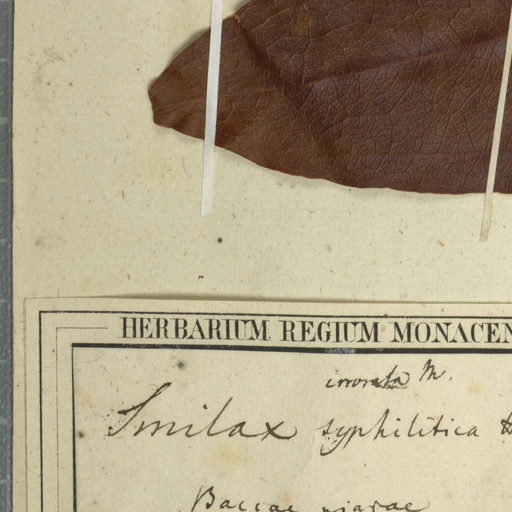 HERBARIUM REGIUM MONACEN
M.
Smilax syphilitica
Baccae nigrae